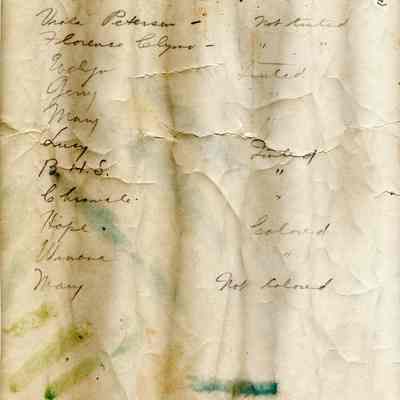 Viola Peterson – Not tinted
Florence Clyno – " "
Evelyn Tinted
Jerry "
Mary
Lucy Tinted
B.H.S. "
Chronicle. "
Hope. Colored
Winona "
Mary Not Colored